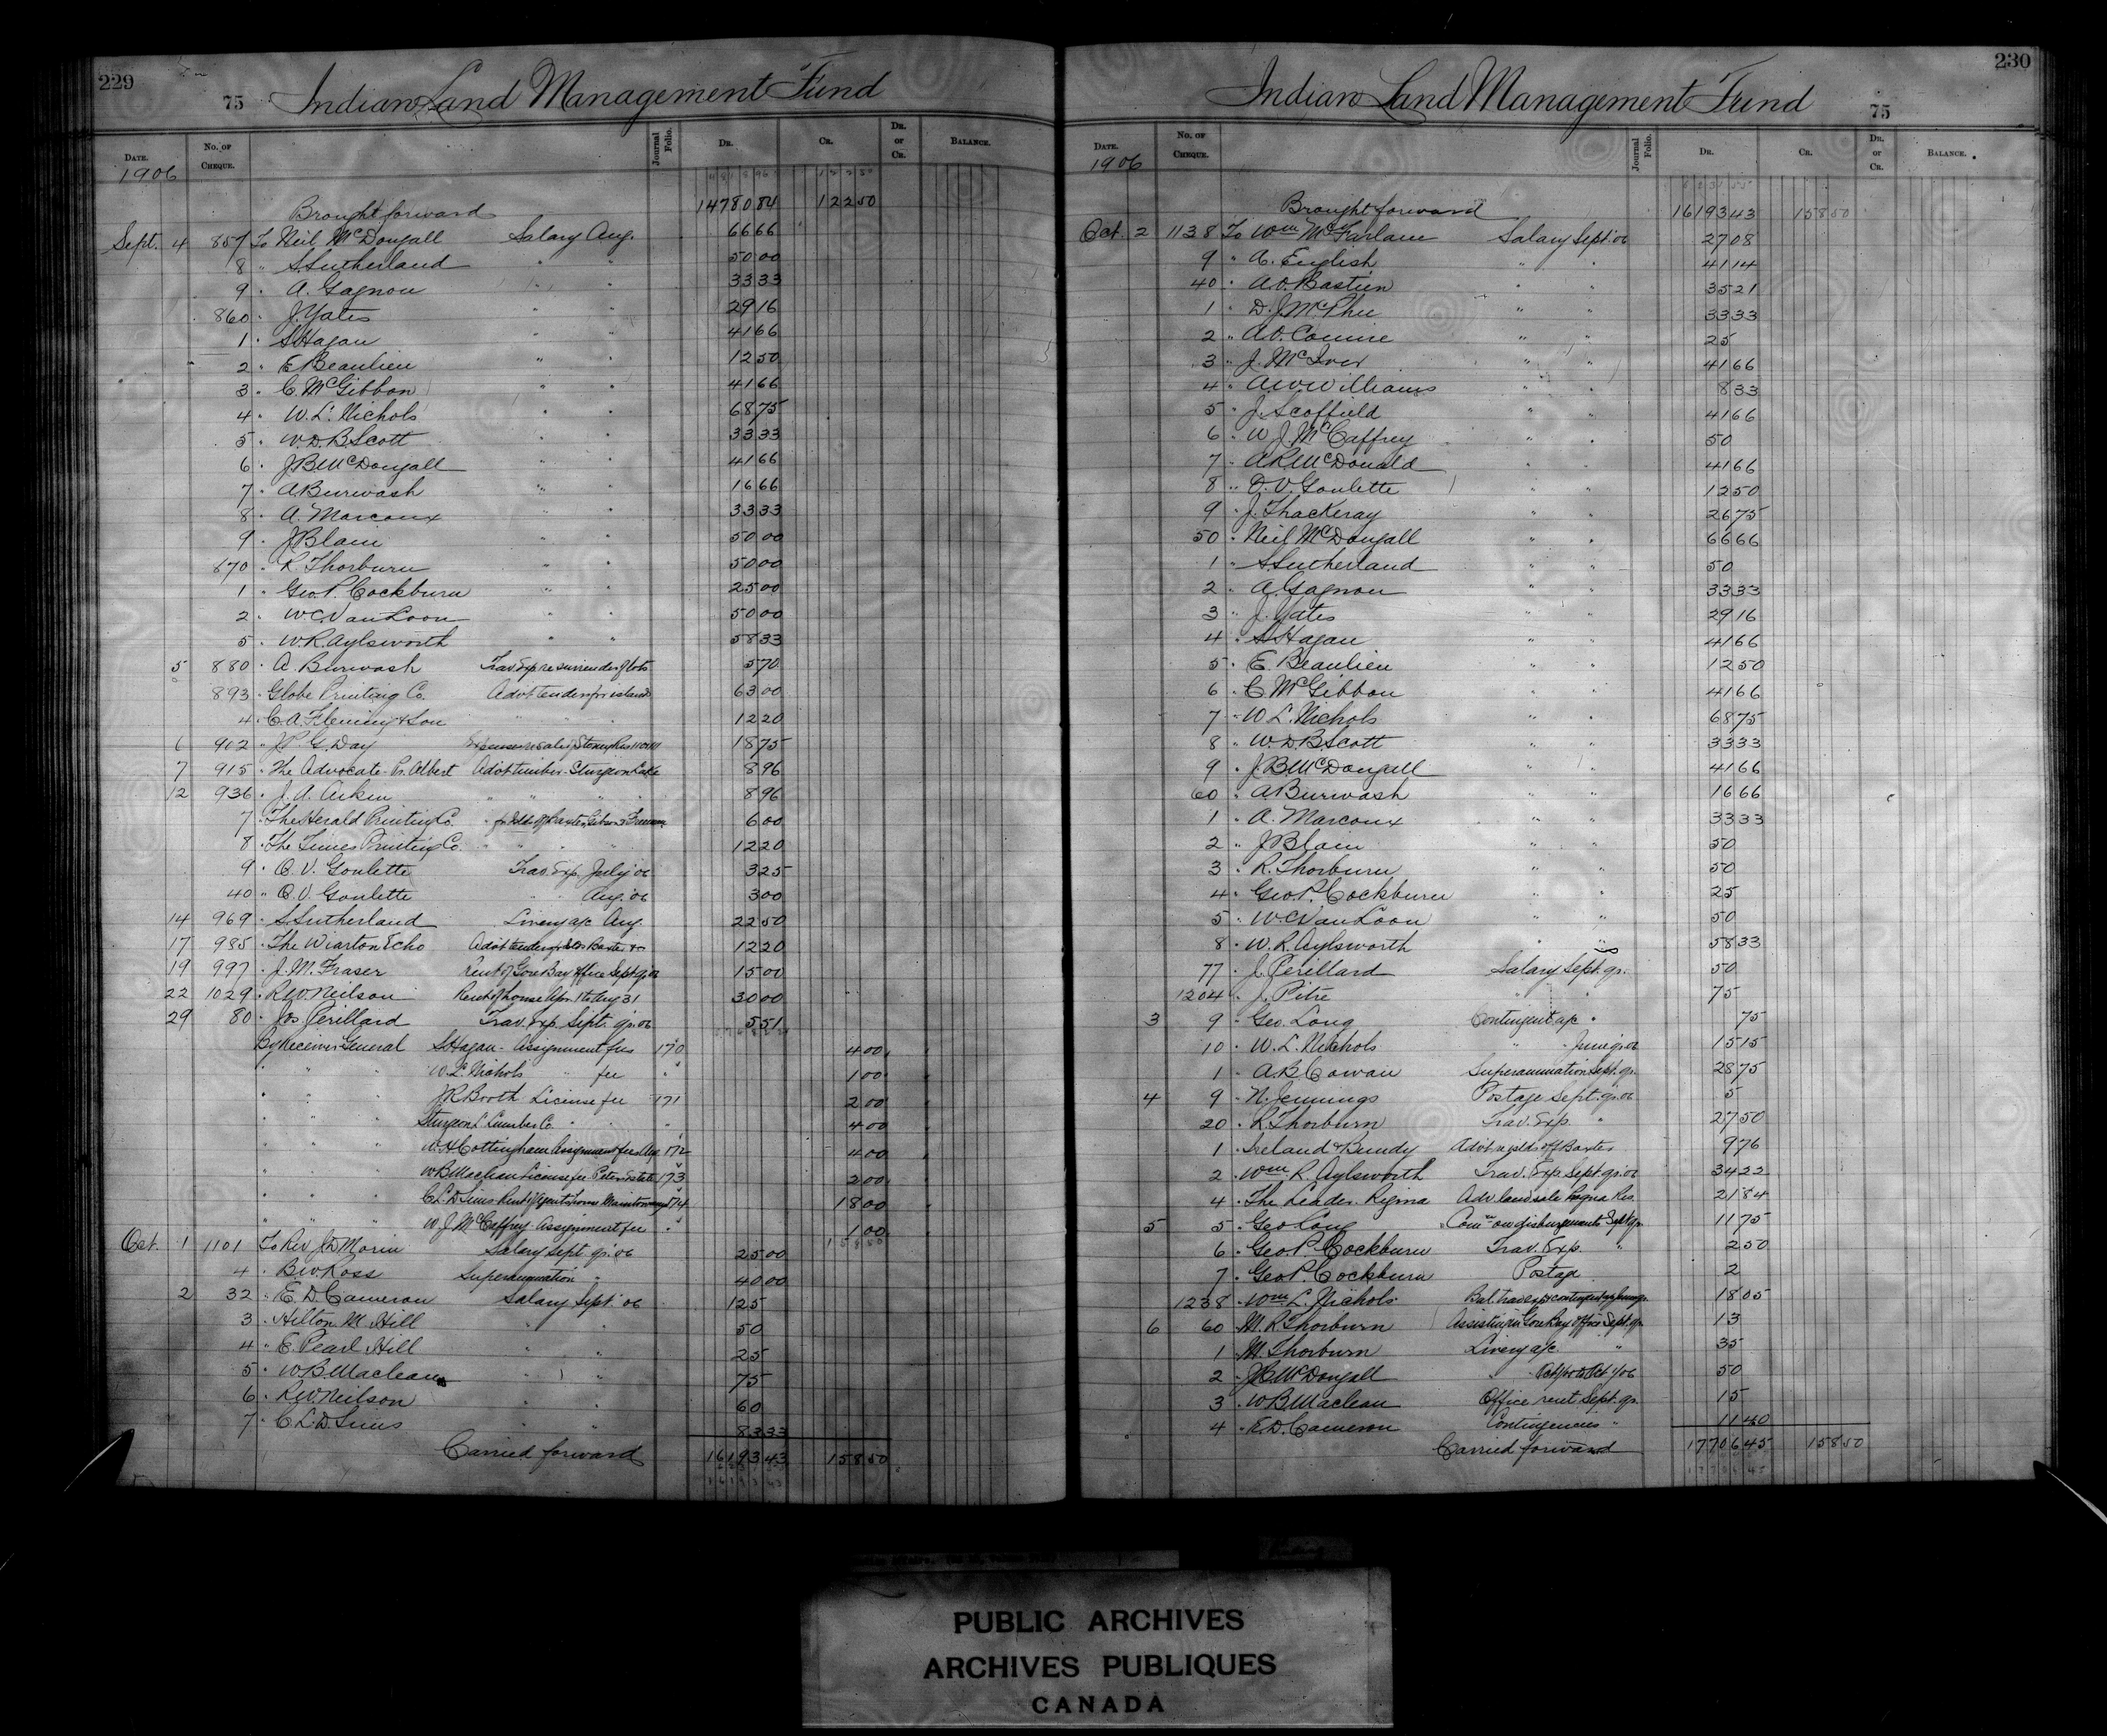 229
75 Indian Land Management Fund
DATE. No. OF CHEQUE. Journal Folio. DR. CR. DR. or CR. BALANCE.
1906
Brought forward 14780 84 122 50
Sept. 4 857 To Neil McDougall Salary Aug. 66 66
8 " S. Sutherland " " 50 00
9 " A. Gagnon " " 33 33
860 " J. Yates " " 29 16
1 " S. Hagan " " 41 66
2 " E. Beaulieu " " 12 50
3 " C. McGibbon " " 41 66
4 " W. L. Nichols " " 68 75
5 " W. D. B. Scott " " 33 33
6 " J. B. McDougall " " 41 66
7 " A. Burwash " " 16 66
8 " A. Marcoux " " 33 33
9 " J. Blain " " 50 00
870 " R. Thorburn " " 50 00
1 " Geo. P. Cockburn " " 25 00
2 " W. C. Van Loon " " 50 00
5 " W. R. Aylsworth " " 58 33
5 880 " A. Burwash Trav. Exp re surrender of lots 5 70
893 " Globe Printing Co. Advt tender for islands 63 00
4 " C. A. Fleming & Son " " " 12 20
6 902 " J. P. G. Day Expenses re sale of Stoney Res 18 75
7 915 " The Advocate - Pr. Albert Advt timber - Sturgeon Lake 8 96
12 936 " J. A. Aiken " " " " 8 96
7 " The Herald Printing Co. " 6 00
8 " The Times Printing Co. " " " 12 20
9 " O. V. Goulette Trav. Exp. July '06 3 25
40 " O. V. Goulette " " Aug. '06 3 00
14 969 " S. Sutherland Livery a/c Aug. 22 50
17 985 " The Wiarton Echo Advt tender Baxter &c 12 20
19 997 " J. M. Fraser Rent of Gore Bay office Sept qr. 06 15 00
22 1029 " R. W. Neilson Rent of house Apr. 1 to Aug 31 30 00
29 80 " Jos. Perillard Trav. Exp. Sept. qr. 06 5 51
By Receiver General S. Hagan - Assignment fees 170 4 00
" " " W. L. Nichols " fee " 1 00
" " " J. R. Booth License fee 171 2 00
" " " Sturgeon L. Lumber Co. " " " 4 00
" " " W. H. Cottingham Assignment fees Aug 172 4 00
" " " W. B. Maclean License fee Peter Estate 173 2 00
" " " C. L. D. Sims Rent of Agents house Manitowaning 174 18 00
" " " W. J. McCaffrey Assignment fee " 1 00
Oct. 1 1101 To Rev. J. D. Morin Salary Sept qr. '06 25 00
4 " B. W. Ross Superannuation " 40 00
2 32 " E. D. Cameron Salary Sept. '06 125
3 " Hilton M. Hill " " 50
4 " E. Pearl Hill " " 25
5 " W. B. Maclean " " 75
6 " R. W. Neilson " " 60
7 " C. L. D. Sims " " 83 33
Carried forward 16193 43 158 50
230
Indian Land Management Fund 75
DATE. No. OF CHEQUE. Journal Folio. DR. CR. DR. or CR. BALANCE.
1906
Brought forward 16193 43 158 50
Oct. 2 1138 To Wm McFarlane Salary Sept. '06 27 08
9 " A. English " " 41 14
40 " A. O. Bastien " " 35 21
1 " D. J. McPhee " " 33 33
2 " A. O. Comire " " 25
3 " J. McIver " " 41 66
4 " A. W. Williams " " 8 33
5 " J. Scoffield " " 41 66
6 " W. J. McCaffrey " " 50
7 " A. R. McDonald " " 41 66
8 " O. V. Goulette " " 12 50
9 " J. Thackeray " " 26 75
50 " Neil McDougall " " 66 66
1 " S. Sutherland " " 50
2 " A. Gagnon " " 33 33
3 " J. Yates " " 29 16
4 " S. Hagan " " 41 66
5 " E. Beaulieu " " 12 50
6 " C. McGibbon " " 41 66
7 " W. L. Nichols " " 68 75
8 " W. D. B. Scott " " 33 33
9 " J. B. McDougall " " 41 66
60 " A. Burwash " " 16 66
1 " A. Marcoux " " 33 33
2 " J. Blain " " 50
3 " R. Thorburn " " 50
4 " Geo. P. Cockburn " " 25
5 " W. C. Van Loon " " 50
8 " W. R. Aylsworth " " 58 33
77 " J. Perillard Salary Sept. qr. 50
1204 " J. Pitre " " 75
3 9 " Geo. Long Contingent a/c " 75
10 " W. L. Nichols " " June qr. 06 15 15
1 " A. B. Cowan Superannuation Sept. qr. 28 75
4 9 " N. Jennings Postage Sept. qr. 06 5
20 " R. Thorburn Trav. Exp. " 27 50
1 " Ireland & Bundy Advt re islds off Baxter 9 76
2 " Wm R. Aylsworth Trav. Exp. Sept. qr. 06 34 22
4 " The Leader Regina Adv. land sale Regina Res. 21 84
5 5 " Geo Long Comn on disbursements Sept qr. 11 75
6 " Geo. P. Cockburn Trav. Exp. " 2 50
7 " Geo. P. Cockburn Postage 2
1238 " Wm. L. Nichols Bal. trav exp & contingent a/c June qr. 18 05
6 60 " M. R. Thorburn Assisting in Gore Bay Office Sept. qr. 13
1 " M. Thorburn Livery a/c " 35
2 " J. C. McDougall " to Oct 1/06 50
3 " W. B. Maclean Office rent Sept. qr. 15
4 " E. D. Cameron Contingencies " 11 40
Carried forward 17706 45 158 50
PUBLIC ARCHIVES
ARCHIVES PUBLIQUES
CANADA